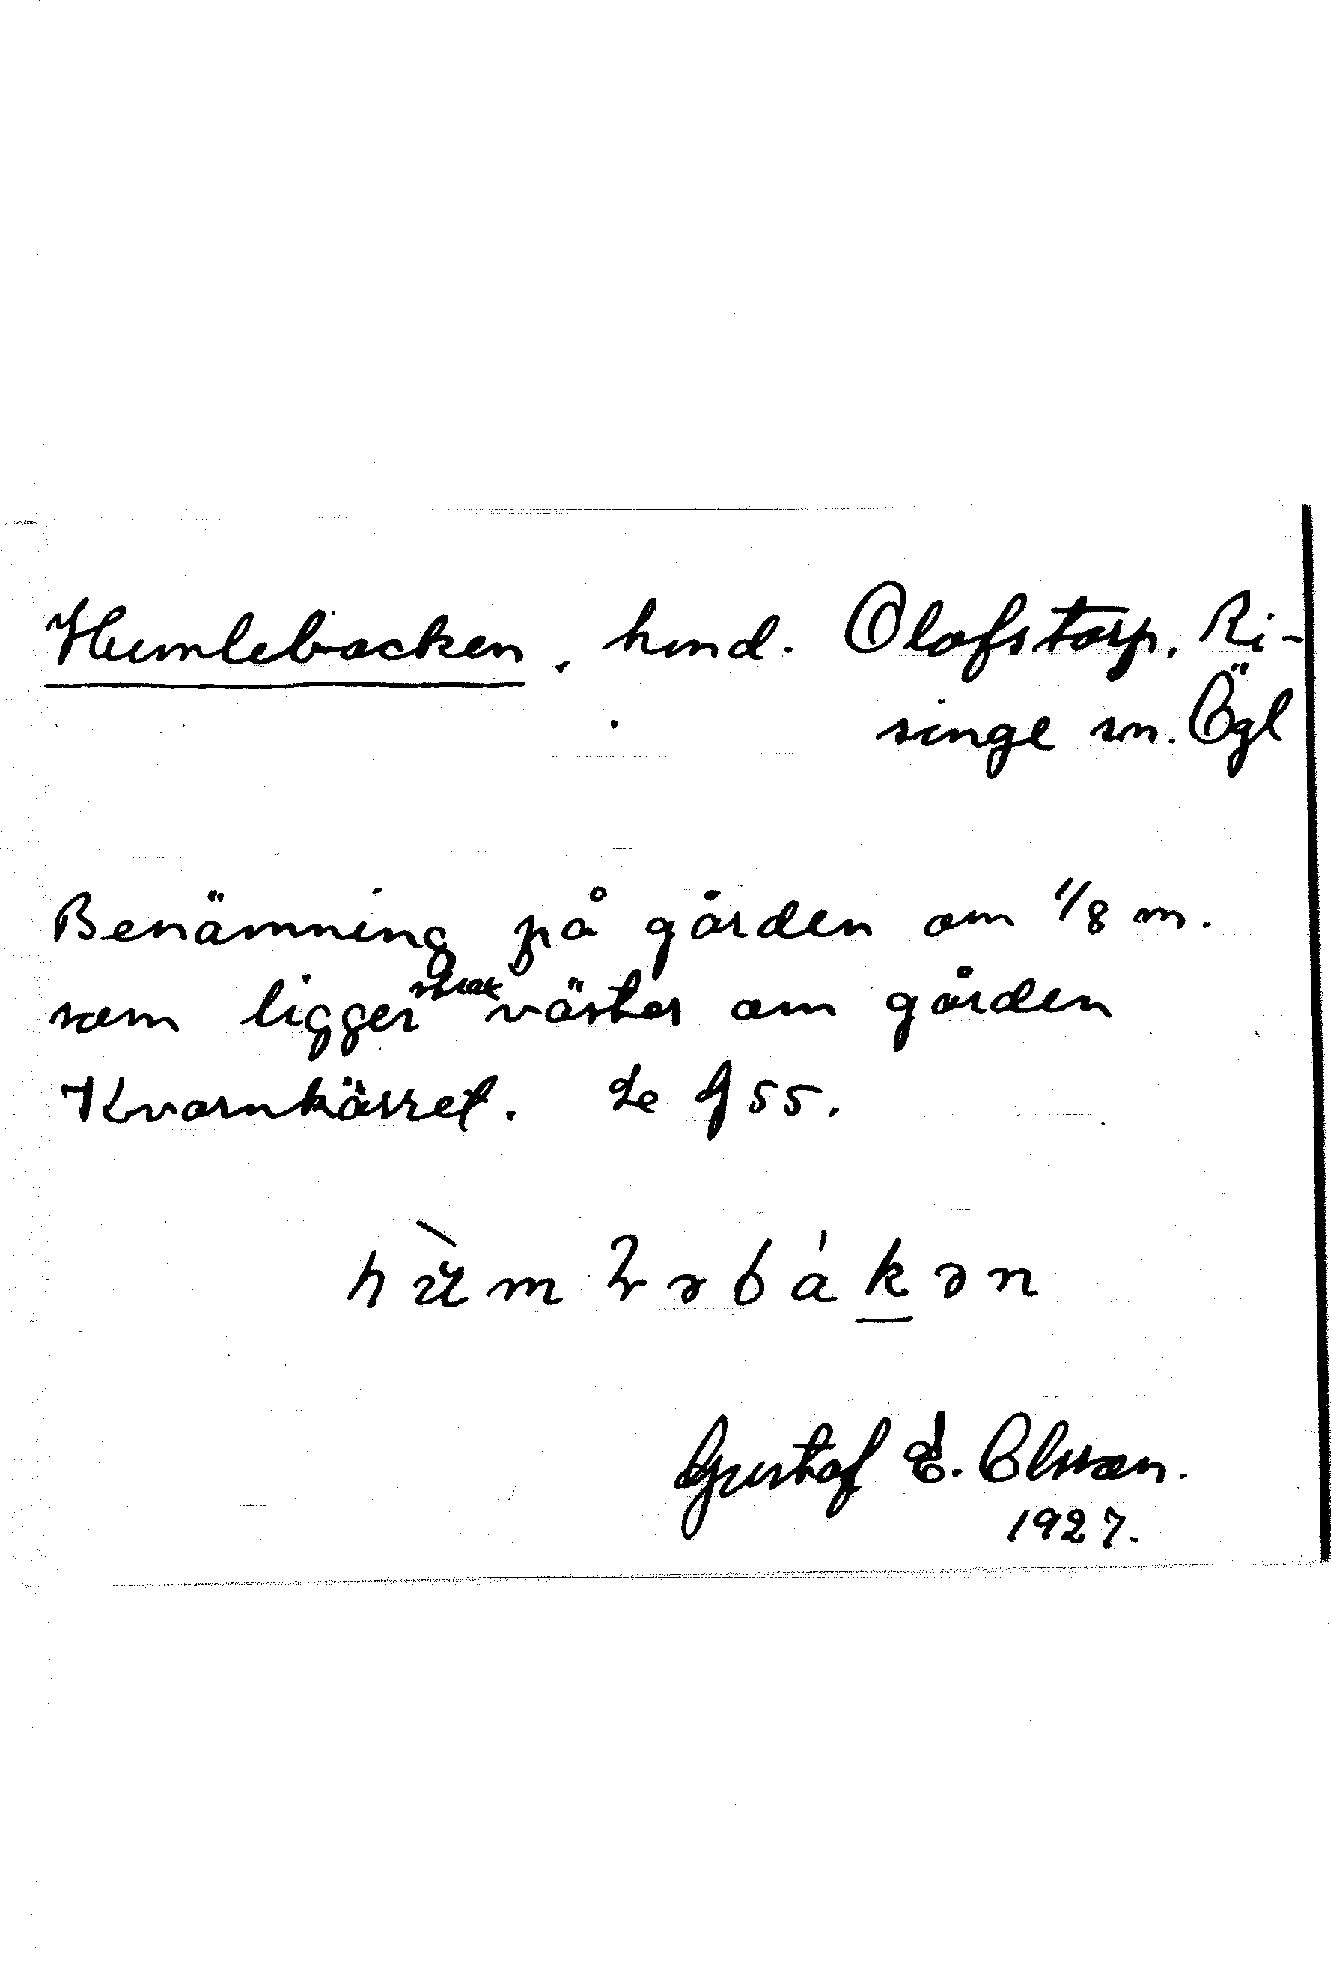 Humlebacken, hmd. Olofstorp, Ri-
singe sn. Ögl
Benämning på gården om 1/8 m.
som ligger strax väster om gården
Kvarnkärret. Le f 55.
Gustaf E. Olsson.
1927.